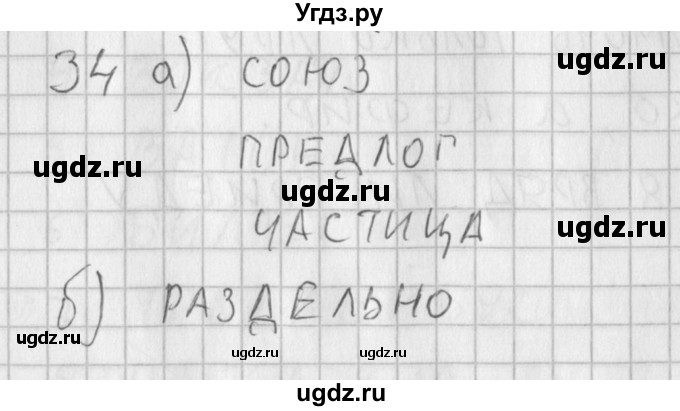 Угдз.ру
34 а) СОЮЗ
ugdz.ru
ПРЕДЛОГ
ugdz.ru
ugdz.ru
ugdz.ru
ЧАСТИЦА
ugdz.ru
б) РАЗДЕЛЬНО
ugdz.ru
ugdz.ru
ugdz.ru
ugdz.ru